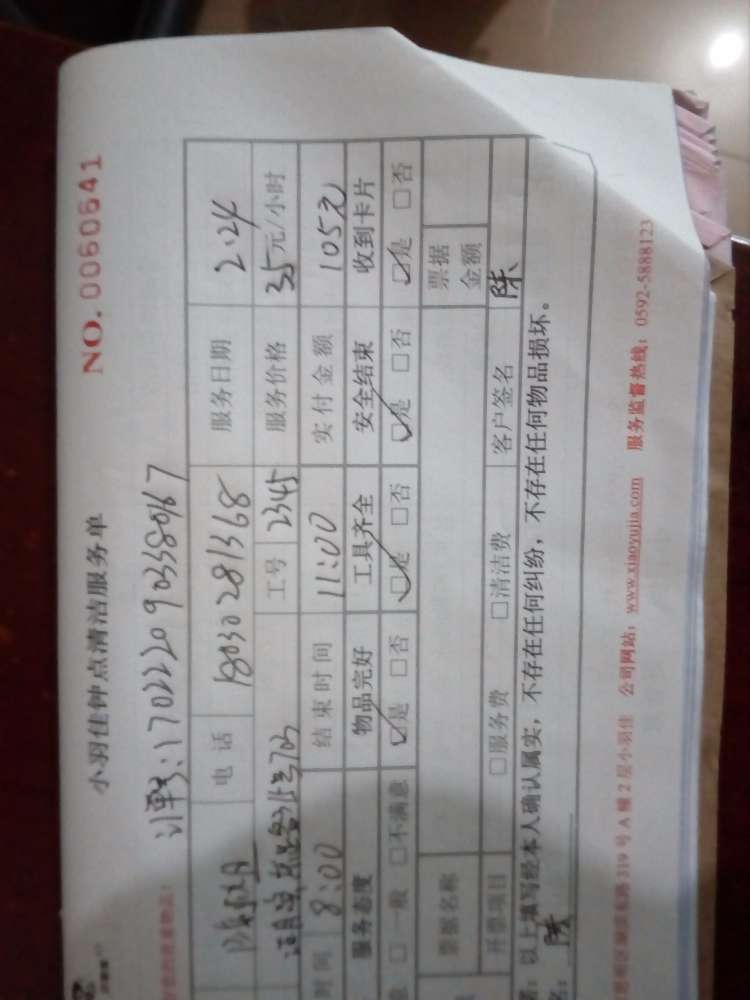 小羽佳钟点清洁服务单
NO. 0060641
订单号:170222090338967
电话 18030281368 服务日期 2.24
工号 2345 服务价格 35元/小时
时间 8:00 结束时间 11:00 实付金额 105元
服务态度 物品完好 工具齐全 安全结束 收到卡片
□一般 □不满意 ☑是 □否 ☑是 □否 ☑是 □否 ☑是 □否
票据名称 票据金额
开票项目 □服务费 □清洁费 客户签名 陈
以上填写经本人确认属实，不存在任何纠纷，不存在任何物品损坏。
陈
319号A幢2层小羽佳 公司网站：www.xiaoyujia.com 服务监督热线：0592-5888123